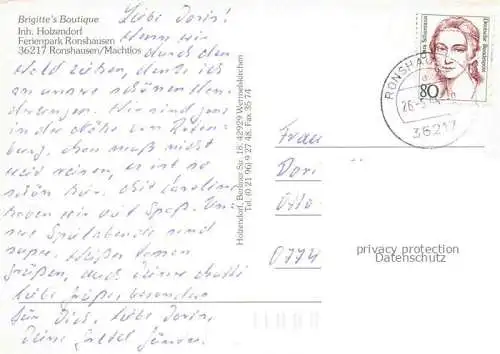 Brigitte's Boutique
Inh. Holzendorf
Ferienpark Ronshausen
36217 Ronshausen/Machtlos
Liebe Doris!
Wenn wir
durch den
Wald ziehen, denke ich
an unsere schönen
Wir sind jetzt
in der Nähe von Roten-
burg. Man muß nicht
weit reisen, es ist so
schön hier. Mit Caroline
haben wir viel Spaß. Un-
sere Spielabende sind
super.
Grüßen, auch Deiner
liebe Grüße, besonders
für Dich, liebe Doris,
Deine
Holzendorf, Berliner Str. 18, 42929 Wermelskirchen
Tel. (0 21 96) 9 27 48, Fax 35 74
Deutsche Bundespost
80
RONSHAUSEN
36217
Frau
Doris
Otto
privacy protection
Datenschutz